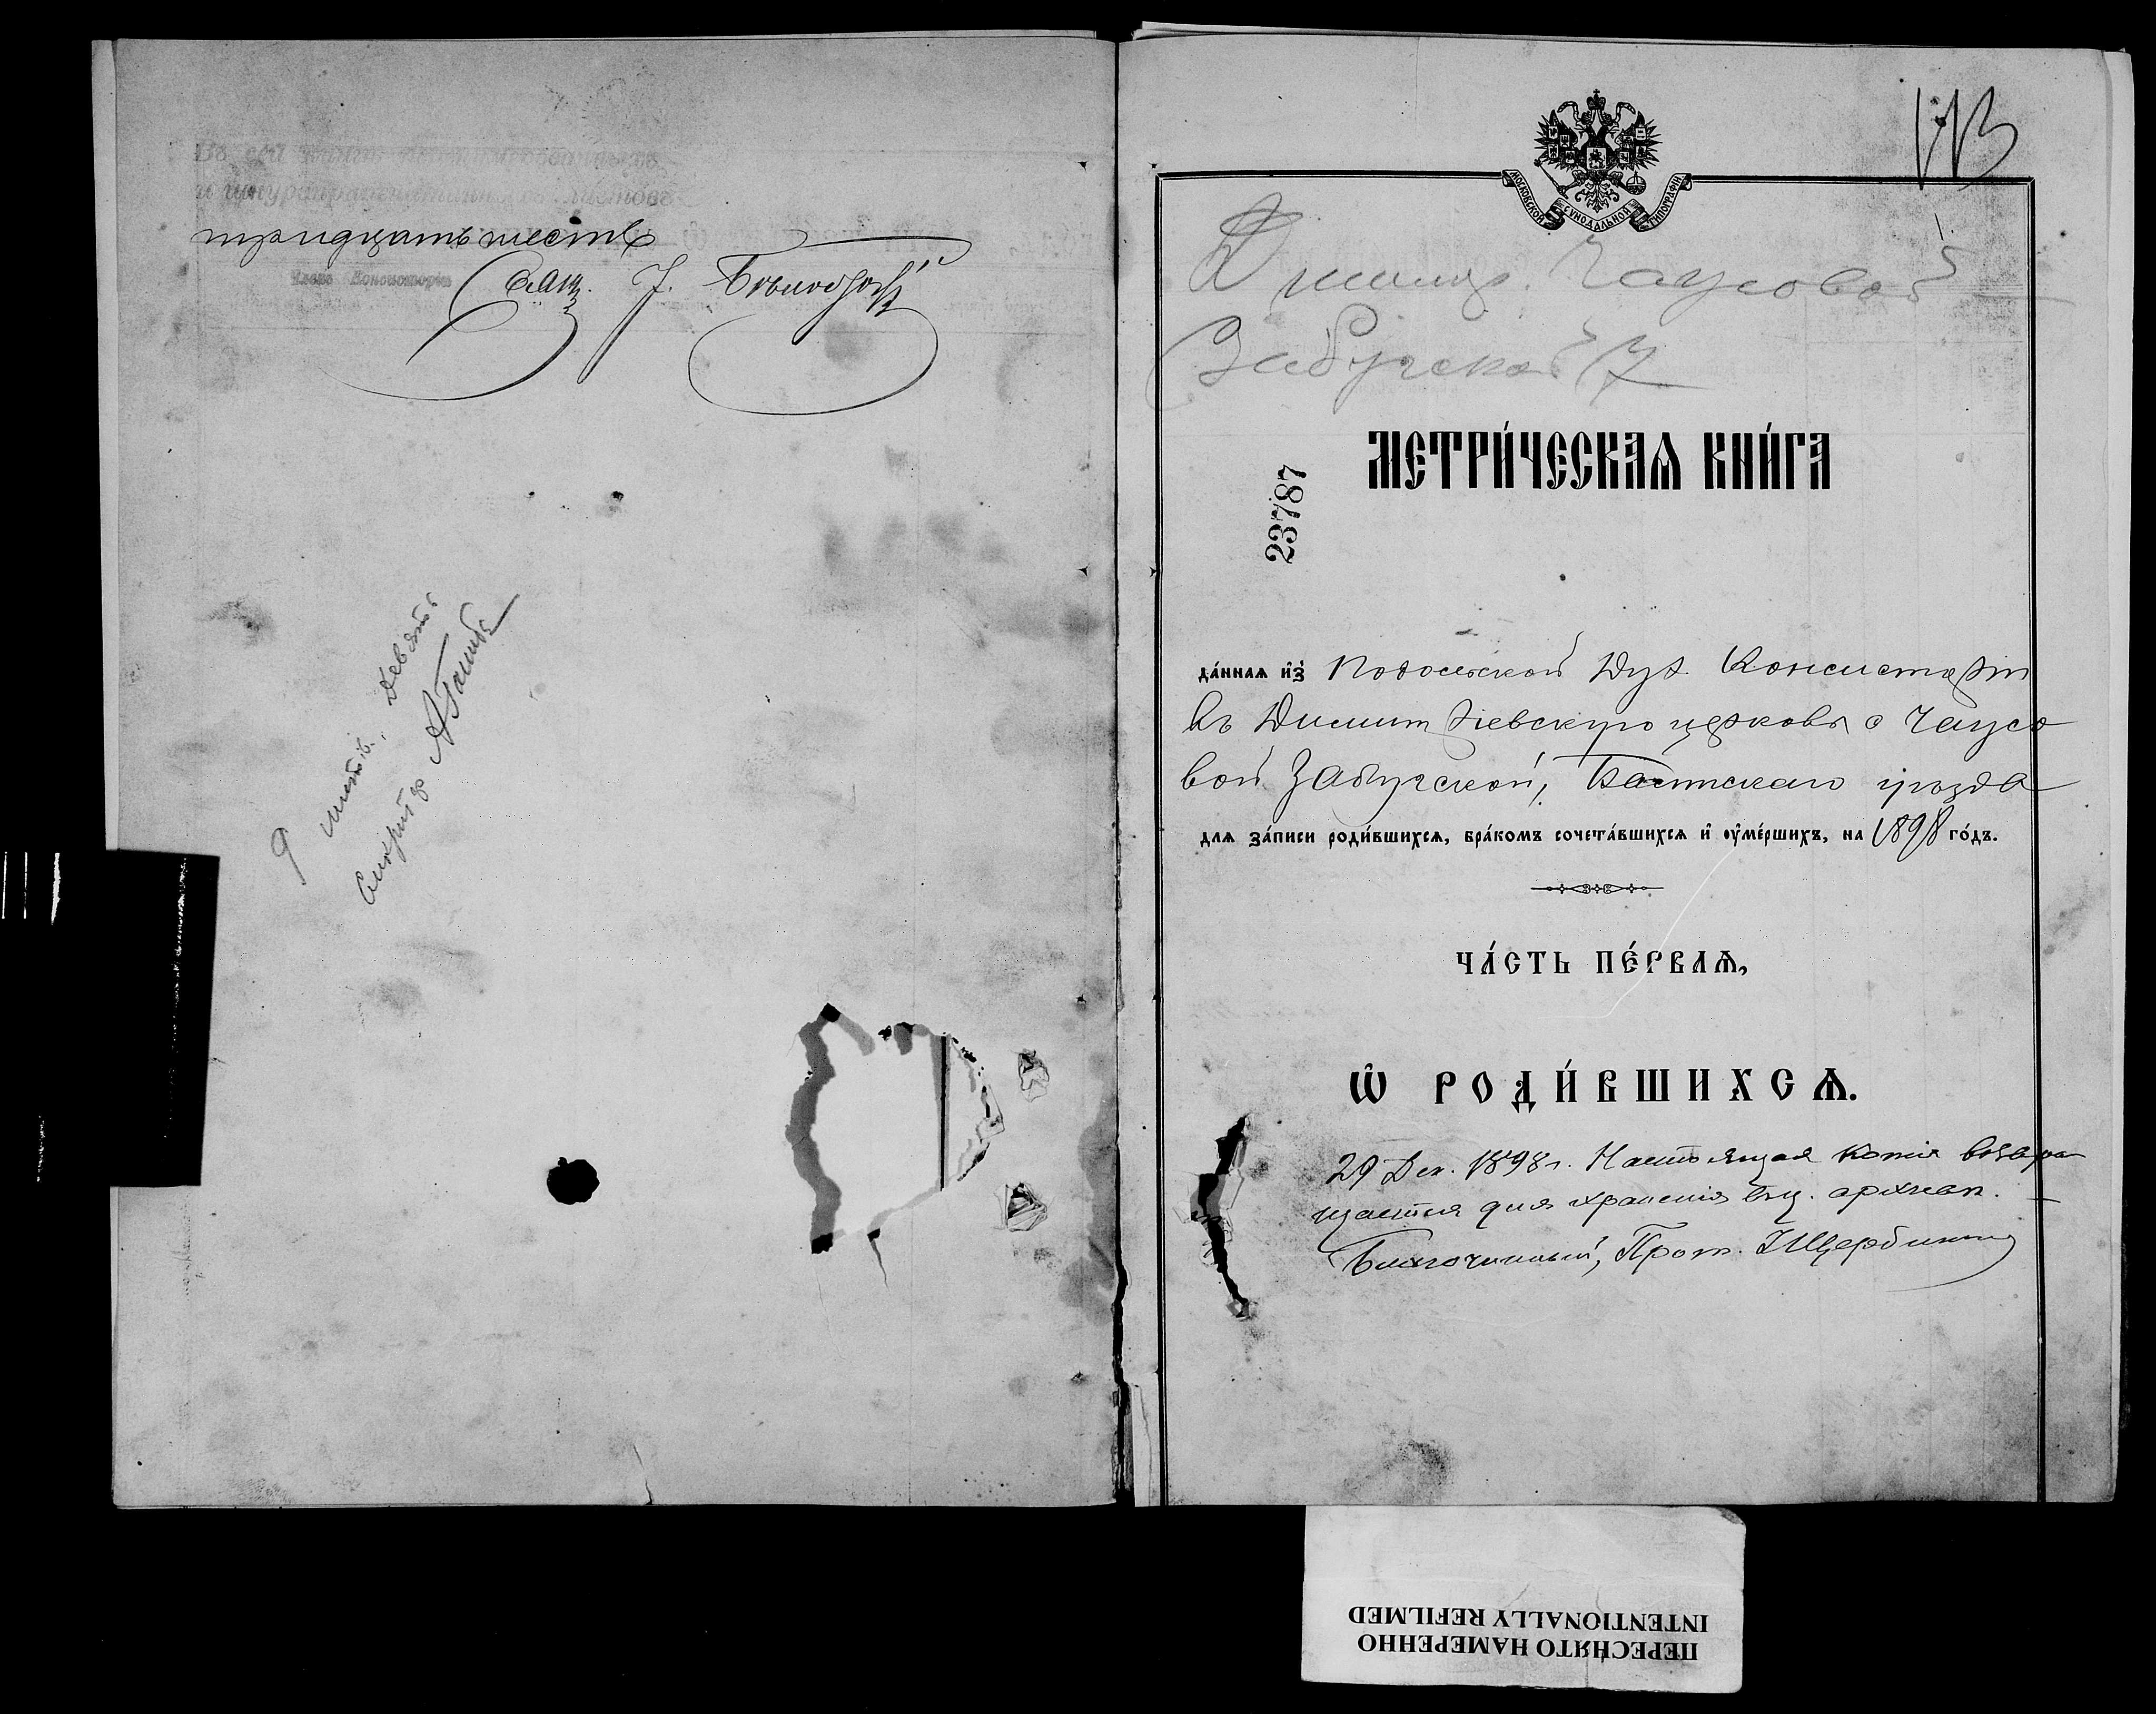 Въ сей книгѣ перенумерованныхъ
и шнуроприпечатанныхъ листовъ
тридцать шесть
Членъ Консисторіи Свящ. І.
9 девять
Секрет.
МОСКОВСКОЙ СѴНОДАЛЬНОЙ ТИПОГРАФІИ
Димитр. Чаусовой
Забугской
МЕТРИ́ЧЕСКАѦ КНИ́ГА
23787
да́ннаѧ и҆з̾ Подольской Дух. Консисторіи
въ Димитріевскую церковь с Чаусо
вой Забугской, Балтскаго уѣзда
длѧ за́писи роди́вшихсѧ, бра́комъ сочета́вшихсѧ и҆ ᲂу҆ме́ршихъ, на 1898 го́дъ.
ЧА́СТЬ ПЕ́РВАѦ,
Ѽ РОДИ́ВШИХСѦ.
29 Дек. 1898 г. Настоящая копія возвра
щается для храненія въ ц. архивѣ.
Благочинный, Прот. І Щербина
ПЕРЕСНЯТО НАМЕРЕННО
INTENTIONALLY REFILMED